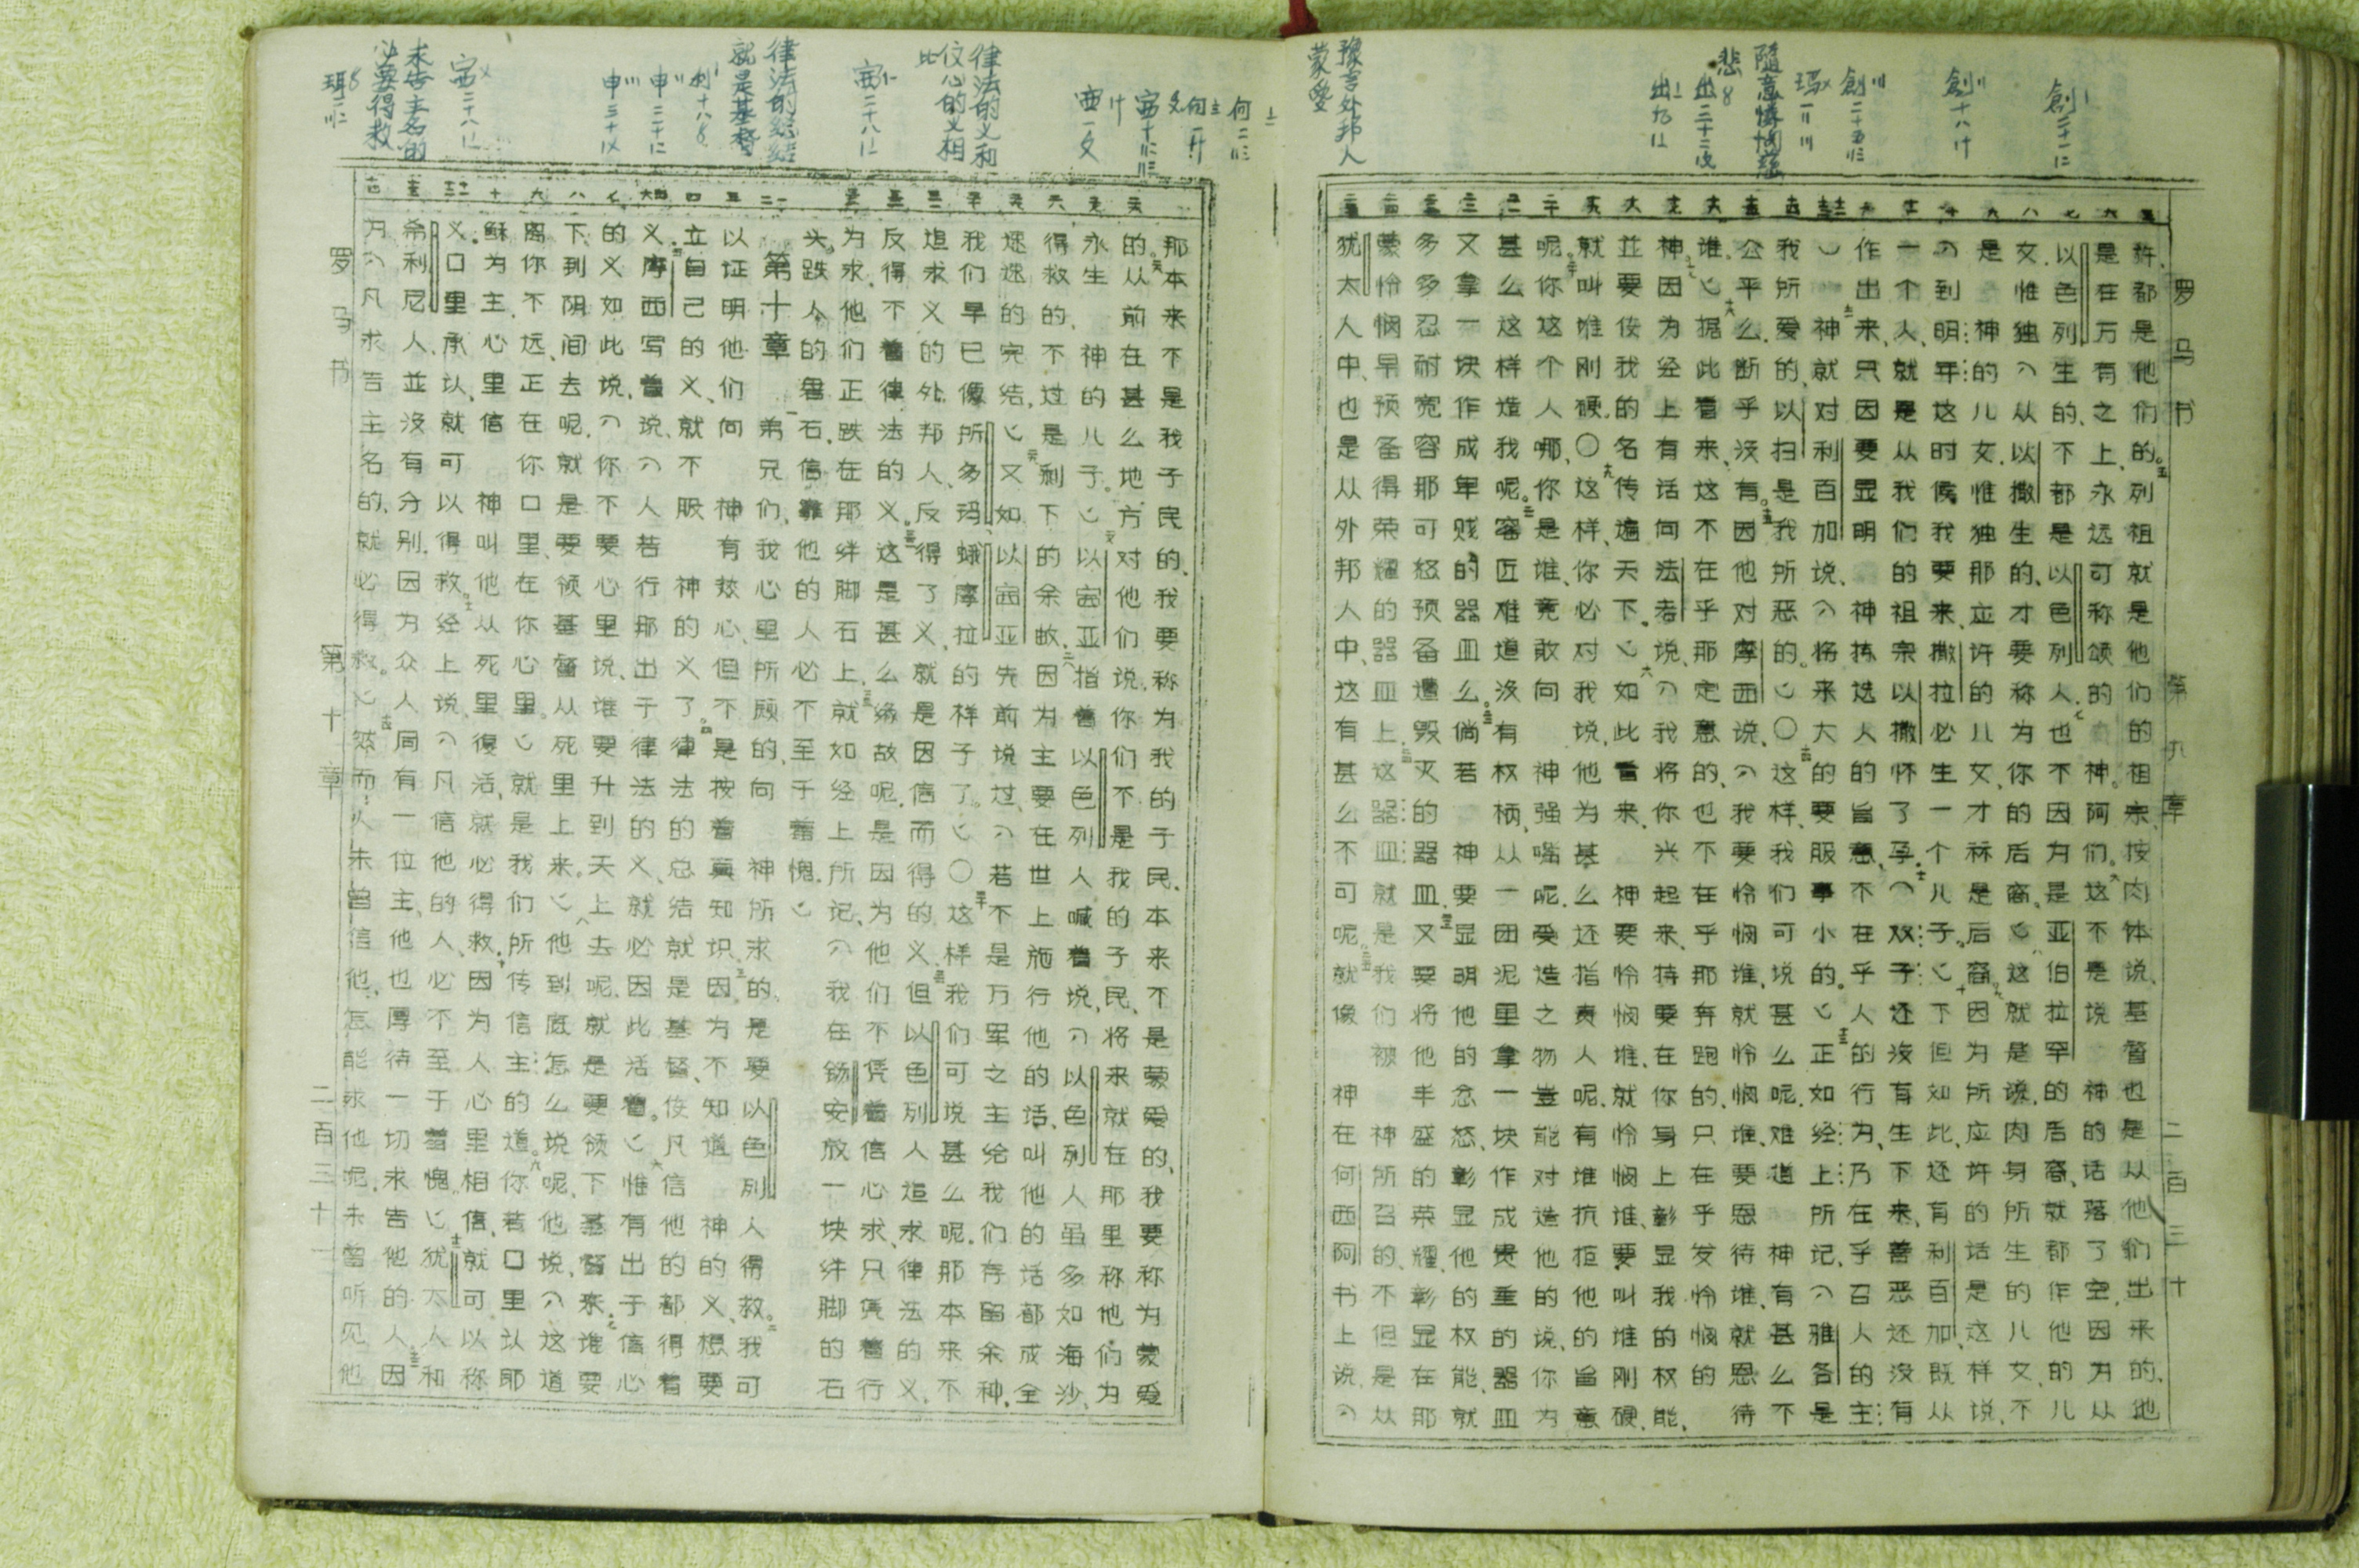 豫言外邦人蒙爱
随意怜悯慈悲
罗马书 第九章 二百三十
许、都是他们的。五列祖就是他们的祖宗、按肉体说、基督也是从他们出来的、他
是在万有之上、永远可称颂的 神。阿们。六这不是说 神的话落了空、因为从
以色列生的、不都是以色列人。七也不因为是亚伯拉罕的后裔、就都作他的儿
女、惟独〔从以撒生的、才要称为你的后裔。〕八这就是说、肉身所生的儿女、不
是 神的儿女、惟独那应许的儿女、才祘是后裔。九因为所应许的话是这样说、
〔到明年这时候我要来、撒拉必生一个儿子。〕十不但如此、还有利百加、既从
一个人、就是从我们的祖宗以撒怀了孕。十一〔双子还没有生下来、善恶还没有
作出来、只因要显明 神拣选人的旨意、不在乎人的行为、乃在乎召人的主
〕十二神就对利百加说、〔将来大的要服事小的。〕十三正如经上所记、〔雅各是
我所爱的、以扫是我所恶的。〕〇十四这样、我们可说甚么呢、难道 神有甚么不
公平么、断乎没有。十五因他对摩西说、〔我要怜悯谁、就怜悯谁、要恩待谁、就恩待
谁。〕十六据此看来、这不在乎那定意的、也不在乎那奔跑的、只在乎发怜悯的
神。十七因为经上有话向法老说、〔我将你兴起来、特要在你身上彰显我的权能、
並要使我的名传遍天下。〕十八如此看来、 神要怜悯谁、就怜悯谁、要叫谁刚硬、
就叫谁刚硬。〇十九这样、你必对我说、他为甚么还指责人呢、有谁抗拒他的旨意
呢。二十你这个人哪、你是谁、竟敢向 神强嘴呢、受造之物岂能对造他的说、你为
甚么这样造我呢。二一窑匠难道没有权柄、从一团泥里拿一块作成贵重的器皿、
又拿一块作成卑贱的器皿么。二二倘若 神要显明他的忿怒、彰显他的权能、就
多多忍耐宽容那可怒预备遭毁灭的器皿、二三又要将他丰盛的荣耀、彰显在那
蒙怜悯早预备得荣耀的器皿上。二四这器皿就是我们被 神所召的、不但是从
犹太人中、也是从外邦人中、这有甚么不可呢。二五就像 神在何西阿书上说、〔
律法的义和
仗心的义相比
律法的总结就是基督
求告主名的必要得救
那本来不是我子民的、我要称为我的子民、本来不是蒙爱的、我要称为蒙爱
的。二六从前在甚么地方对他们说、你们不是我的子民、将来就在那里称他们为
永生 神的儿子。〕二七以赛亚指着以色列人喊着说、〔以色列人虽多如海沙、
得救的、不过是剩下的余数、二八因为主要在世上施行他的话、叫他的话都成全、
速速的完结。〕二九又如以赛亚先前说过、〔若不是万军之主给我们存留余种、
我们早已像所多玛蛾摩拉的样子了。〕〇三十这样、我们可说甚么呢。那本来不
追求义的外邦人、反得了义、就是因信而得的义、三一但以色列人追求律法的义、
反得不着律法的义。三二这是甚么缘故呢、是因为他们不凭着信心求、只凭着行
为求、他们正跌在那绊脚石上、三三就如经上所记、〔我在锡安放一块绊脚的石
头。跌人的磐石、信靠他的人必不至于羞愧。〕
第十章 一弟兄们、我心里所愿的、向 神所求的、是要以色列人得救。二我可
以证明他们向 神有热心、但不是按着真知识、三因为不知道 神的义、想要
立自己的义、就不服 神的义了。四律法的总结就是基督、使凡信他的都得着
义。五摩西写着说、〔人若行那出于律法的义、就必因此活着。〕六惟有出于信心
的义如此说、〔你不要心里说、谁要升到天上去呢、就是要领下基督来、七谁要
下到阴间去呢、就是要领基督从死里上来。〕八他到底怎么说呢、他说、〔这道
离你不远、正在你口里、在你心里。〕就是我们所传信主的道。九你若口里认耶
稣为主、心里信 神叫他从死里复活、就必得救、十因为人心里相信、就可以称
义。口里承认、就可以得救。十一经上说、〔凡信他的人、必不至于羞愧。〕十二犹太人和
希利尼人、並没有分别、因为众人同有一位主、他也厚待一切求告他的人、十三因
为〔凡求告主名的、就必得救。〕十四然而人未曾信他、怎能求他呢、未曾听见他
罗马书 第十章 二百三十一